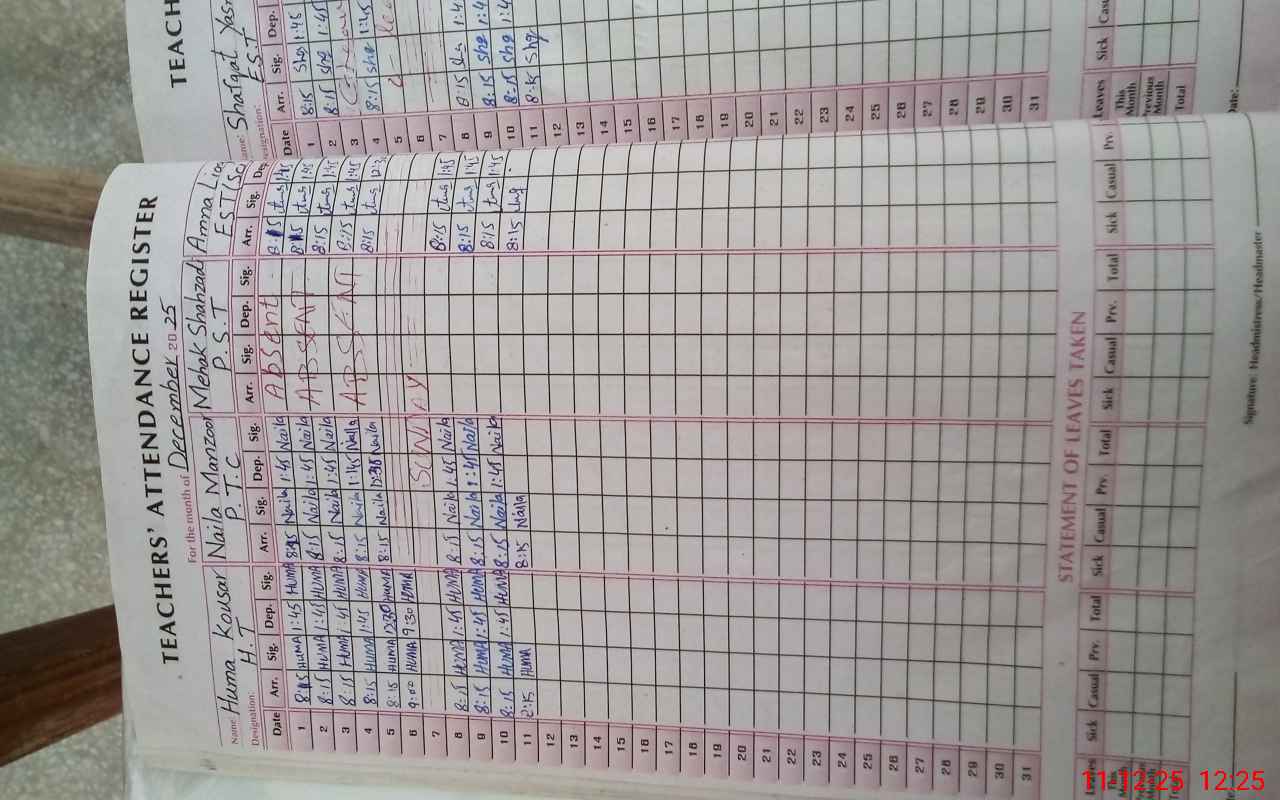 TEACHERS' ATTENDANCE REGISTER
For the month of December 2025
Name: Huma Kousar Naila Manzoor Mehak Shahzadi Amna
Designation: H.T P.T.C P.S.T EST
Date Arr. Sig. Dep. Sig. Arr. Sig. Dep. Sig. Arr. Sig. Dep. Sig. Arr. Sig.
1 8:15 HUMA 1:45 HUMA 8:15 Naila 1:45 Naila Absent 8:15 1:45
2 8:15 HUMA 1:45 HUMA 8:15 Naila 1:45 Naila ABSENT 8:15 1:45
3 8:15 HUMA 1:45 HUMA 8:15 Naila 1:45 Naila 8:15 1:45
4 8:15 HUMA 1:45 HUMA 8:15 Naila 1:45 Naila ABSENT 8:15 1:45
5 8:15 HUMA 12:30 HUMA 8:15 Naila 12:30 Naila 8:15
6 9:00 HUMA 9:30 HUMA
7 SUNDAY
8 8:15 HUMA 1:45 HUMA 8:15 Naila 1:45 Naila 8:15 1:45
9 8:15 HUMA 1:45 HUMA 8:15 Naila 1:45 Naila 8:15 1:45
10 8:15 HUMA 1:45 HUMA 8:15 Naila 1:45 Naila 8:15 1:45
11 2:15 HUMA 8:15 Naila 8:15
12
13
14
15
16
17
18
19
20
21
22
23
24
25
26
27
28
29
30
31
STATEMENT OF LEAVES TAKEN
Leaves Sick Casual Prv. Total Sick Casual Prv. Total Sick Casual Prv. Total Sick Casual Prv.
This Month
Previous Month
Total
Signature: Headmistress/Headmaster
TEACH
Name: Shafqat
Designation: E.S.T
Date Arr. Sig. Dep.
1 8:15 She 1:45
2 8:15 She 1:45
3
4 8:15 She 1:45
5
6
7
8 8:15 She
9 8:15 She
10 8:15 She
11 8:15 She
12
13
14
15
16
17
18
19
20
21
22
23
24
25
26
27
28
29
30
31
Leaves Sick
This Month
Previous Month
Total
Date:
11-12-25 12:25